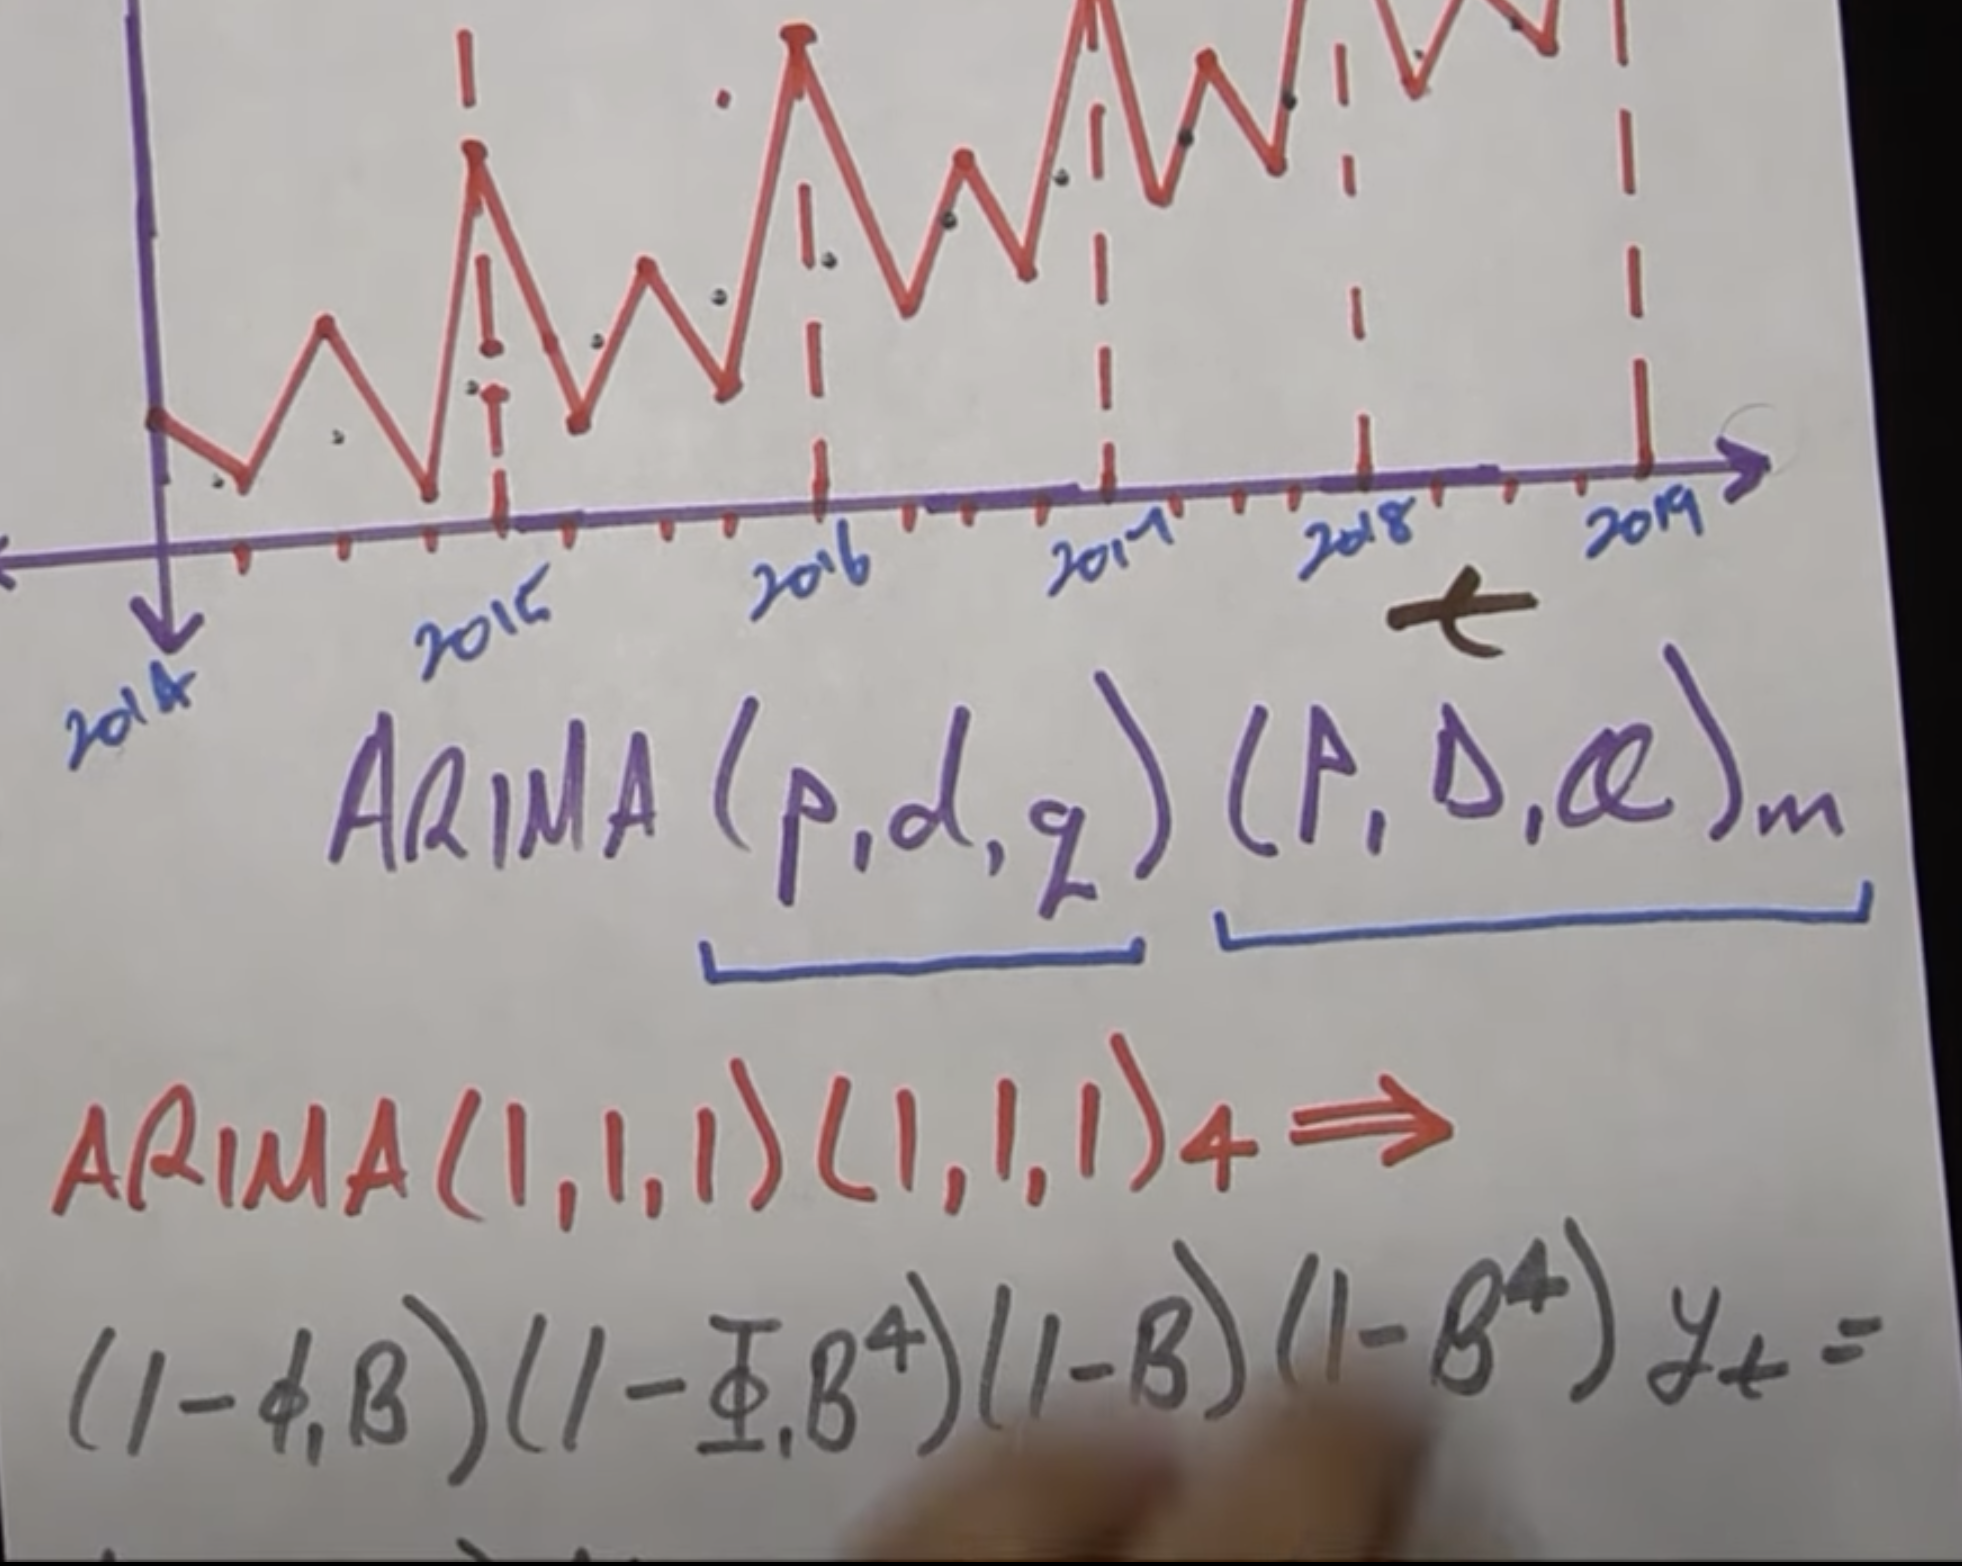 2014 2015 2016 2017 2018 2019
t
ARIMA (p,d,q) (P,D,Q)m
ARIMA(1,1,1)(1,1,1)4 ⇒
(1-ϕ₁B)(1-Φ₁B⁴)(1-B)(1-B⁴) yₜ =